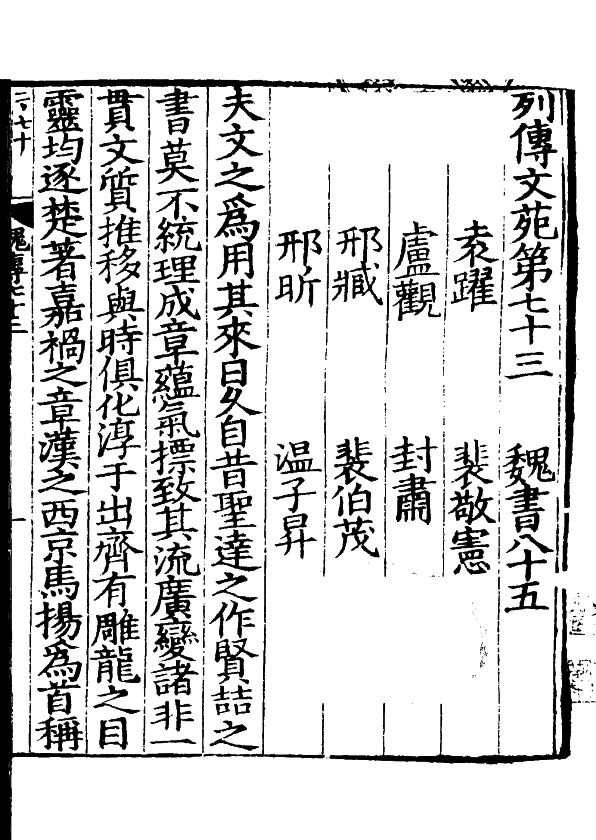 列傳文苑第七十三 魏書八十五
袁躍 裴敬憲
盧觀 封肅
邢臧 裴伯茂
邢昕 温子昇
夫文之爲用其來日久自昔聖達之作賢喆之
書莫不統理成章蘊氣摽致其流廣變諸非一
貫文質推移與時俱化淳于出齊有雕龍之目
靈均逐楚著嘉禍之章漢之西京馬揚爲首稱
二百七十
魏傳七十三
一